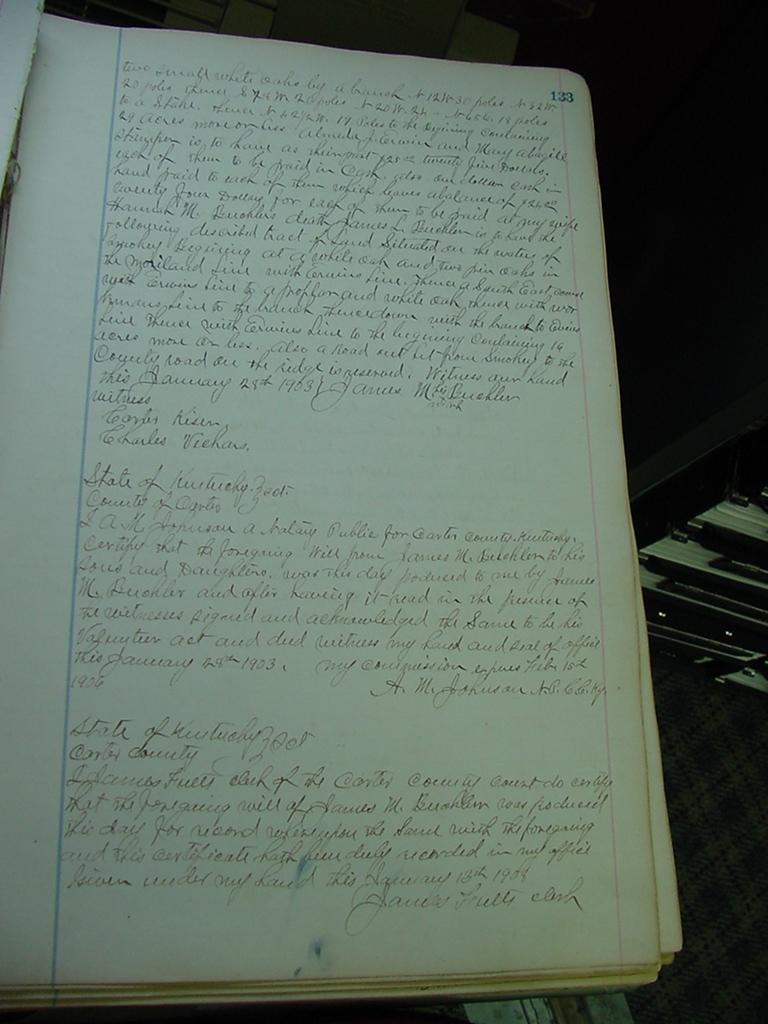 133
two small white oaks by a branch N 12 W 30 poles N 32 W
20 poles thence S 78 W 20 poles N 20 W 24 - N 65 E 18 poles
to a Stake. thence N 42 1/2 W. 17 Poles to the begining Containing
29 acres more or less Almeda J. Erwin and Mary abagill
Stamper is to have as their part $25.00 twenty five Dollars.
each of them to be paid in Cash. also one dollar cash in
hand paid to each of them which leaves a balance of $24.00
twenty four Dollars for each of them to be paid at my wife
Hannah M. Buckler's death James L. Buckler is to have the
following described tract of Land Situated on the waters of
Smokey Begining at a white oak and two pin oaks in
the Moriland Line with Erwins Line, thence a South East course
with Erwins Line to a poplar and white oak thence with
line to the branch thence down with the branch to Erwins
Line thence with Erwins Line to the begining Containing 16
acres more or less. also a Road out from Smokey to the
County road on the ridge is reserved. Witness our hand
this January 28th 1903 } James M. his Buckler
witness mark
Carter Kiser
Charles Vickars.
State of Kentucky } sct.
County of Carter
I A M Johnson a Notary Public for Carter county Kentucky,
certify that the foregoing Will from James M. Buckler to his
Sons and Daughters. was this day produced to me by James
M. Buckler and after having it read in the presence of
the witnesses signed and acknowledged the Same to be his
act and deed witness my hand and seal of office
this January 28th 1903. my commission expires Feb. 15th
1904 A. M. Johnson N.P.C.C. Ky.
State of Kentucky } Sct
Carter County
I James Fults clerk of the Carter County Court do certify
that the foregoing will of James M. Buckler was produced
this day for record whereupon the Same with the foregoing
and this certificate hath been duly recorded in my office
Given under my hand this January 13th 1908
James Fults clerk